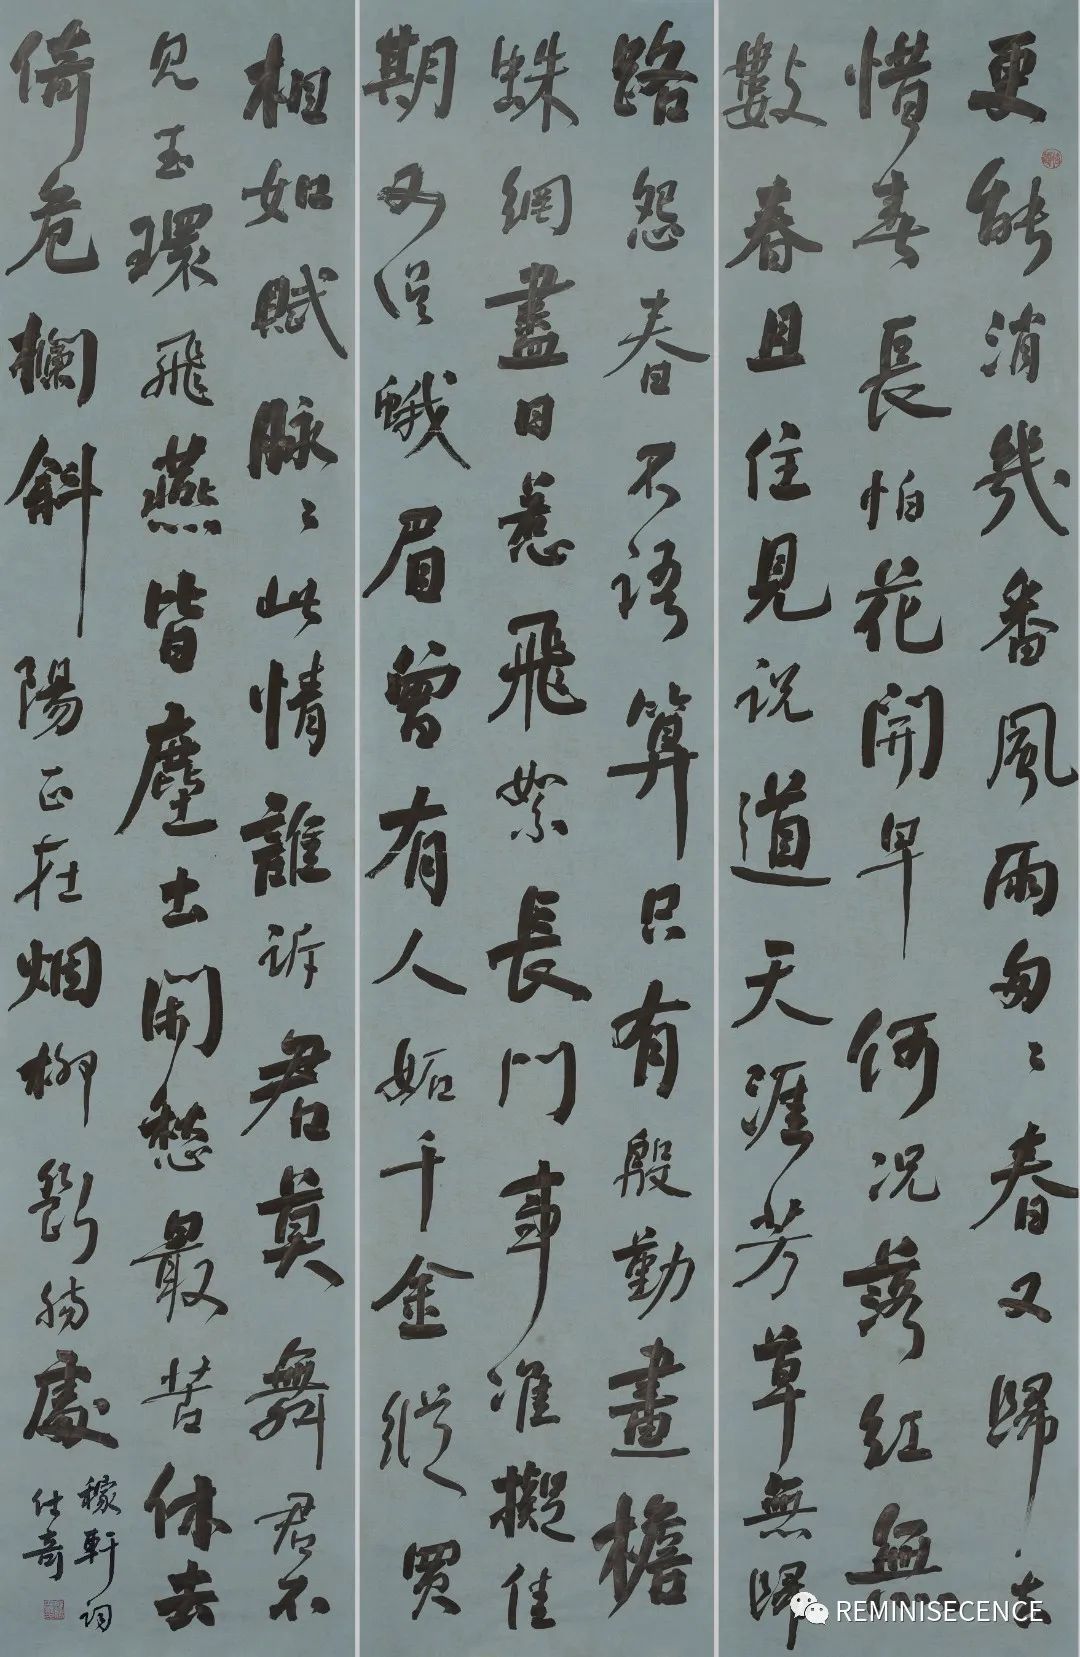 更能消幾番風雨匆〻春又歸去
惜春長怕花開早何況落紅無
數春且住見说道天涯芳草無歸
路怨春不语算只有殷勤畫檐
蛛網盡日惹飛絮長門事准擬佳
期又误蛾眉曾有人妬千金縱買
相如賦脉〻此情誰诉君莫舞君不
見玉環飛燕皆塵土闲愁最苦休去
倚危欄斜陽正在烟柳斷腸處
稼軒词
仕奇
REMINISECENCE